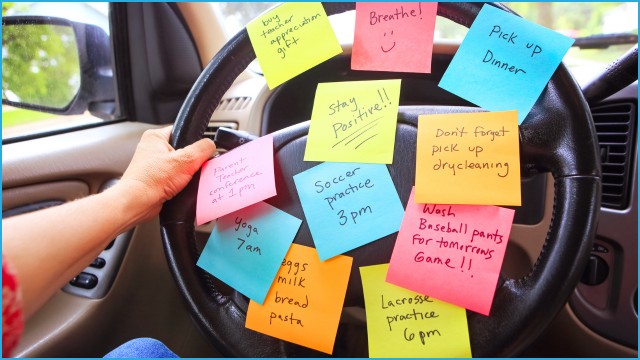 buy
teacher
appreciation
gift
Breathe!
Pick up
Dinner
Stay
Positive!!
Don't forget
pick up
drycleaning
Parent-
Teacher
conference
at 1pm
Soccer
practice
3pm
Wash
Baseball pants
For tomorrows
Game!!
Yoga
7am
eggs
milk
bread
pasta
Lacrosse
practice
6pm